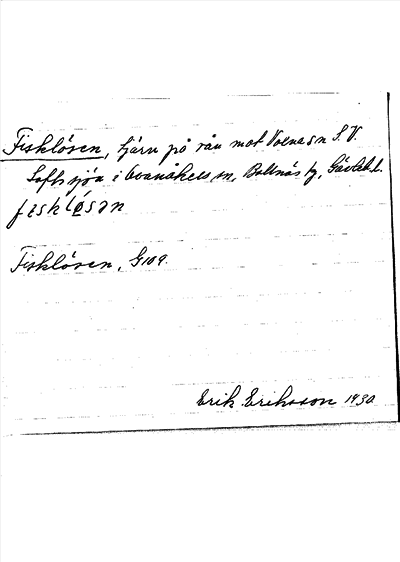 Fisklösen, tjärn på rån mot Voxna sn S.V.
Loftssjön i Ovanåkers sn, Bollnäs tg, Gävleb. l.
fisklösən
Fisklösen, G109.
Erik Eriksson 1930